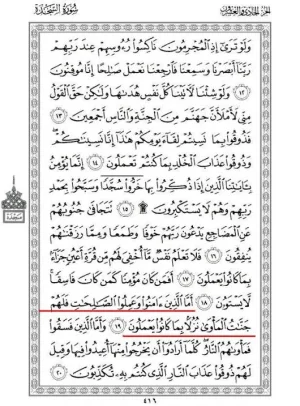 الجزء الحادي والعشرون سورة السجدة
وَلَوْ تَرَىٰٓ إِذِ ٱلْمُجْرِمُونَ نَاكِسُوا۟ رُءُوسِهِمْ عِندَ رَبِّهِمْ
رَبَّنَآ أَبْصَرْنَا وَسَمِعْنَا فَٱرْجِعْنَا نَعْمَلْ صَٰلِحًا إِنَّا مُوقِنُونَ
١٢ وَلَوْ شِئْنَا لَءَاتَيْنَا كُلَّ نَفْسٍ هُدَىٰهَا وَلَٰكِنْ حَقَّ ٱلْقَوْلُ
مِنِّى لَأَمْلَأَنَّ جَهَنَّمَ مِنَ ٱلْجِنَّةِ وَٱلنَّاسِ أَجْمَعِينَ ١٣
فَذُوقُوا۟ بِمَا نَسِيتُمْ لِقَآءَ يَوْمِكُمْ هَٰذَآ إِنَّا نَسِينَٰكُمْ
وَذُوقُوا۟ عَذَابَ ٱلْخُلْدِ بِمَا كُنتُمْ تَعْمَلُونَ ١٤ إِنَّمَا يُؤْمِنُ
بِـَٔايَٰتِنَا ٱلَّذِينَ إِذَا ذُكِّرُوا۟ بِهَا خَرُّوا۟ سُجَّدًا وَسَبَّحُوا۟ بِحَمْدِ
رَبِّهِمْ وَهُمْ لَا يَسْتَكْبِرُونَ ۩ ١٥ تَتَجَافَىٰ جُنُوبُهُمْ
عَنِ ٱلْمَضَاجِعِ يَدْعُونَ رَبَّهُمْ خَوْفًا وَطَمَعًا وَمِمَّا رَزَقْنَٰهُمْ
يُنفِقُونَ ١٦ فَلَا تَعْلَمُ نَفْسٌ مَّآ أُخْفِىَ لَهُم مِّن قُرَّةِ أَعْيُنٍ جَزَآءًۢ
بِمَا كَانُوا۟ يَعْمَلُونَ ١٧ أَفَمَن كَانَ مُؤْمِنًا كَمَن كَانَ فَاسِقًا
لَّا يَسْتَوُۥنَ ١٨ أَمَّا ٱلَّذِينَ ءَامَنُوا۟ وَعَمِلُوا۟ ٱلصَّٰلِحَٰتِ فَلَهُمْ
جَنَّٰتُ ٱلْمَأْوَىٰ نُزُلًۢا بِمَا كَانُوا۟ يَعْمَلُونَ ١٩ وَأَمَّا ٱلَّذِينَ فَسَقُوا۟
فَمَأْوَىٰهُمُ ٱلنَّارُ كُلَّمَآ أَرَادُوٓا۟ أَن يَخْرُجُوا۟ مِنْهَآ أُعِيدُوا۟ فِيهَا وَقِيلَ
لَهُمْ ذُوقُوا۟ عَذَابَ ٱلنَّارِ ٱلَّذِى كُنتُم بِهِۦ تُكَذِّبُونَ ٢٠
سجدة
٤١٦